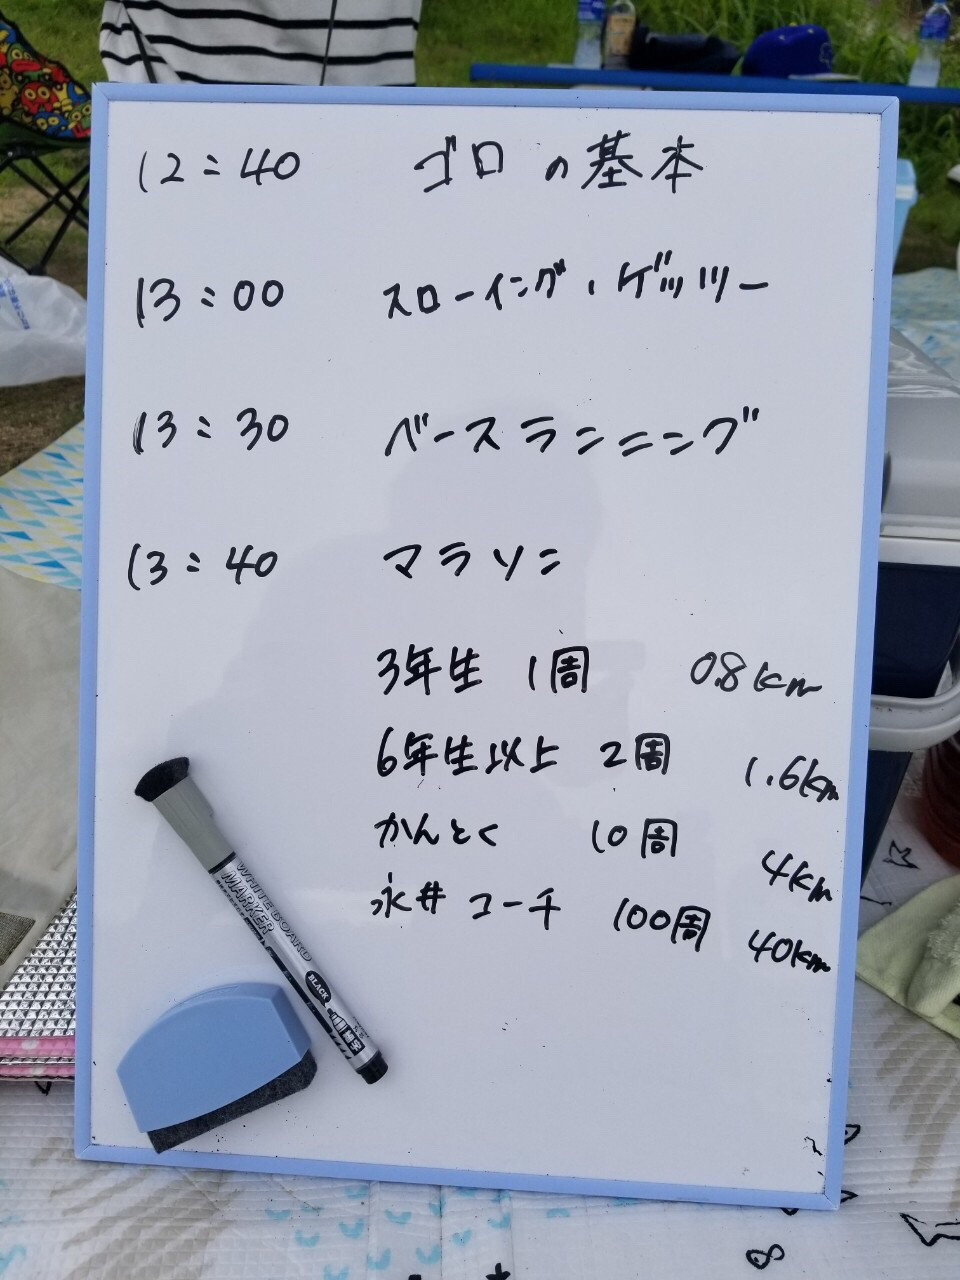 12:40 ゴロの基本
13:00 スローイング・ゲッツー
13:30 ベースランニング
13:40 マラソン
3年生 1周 0.8km
6年生以上 2周 1.6km
かんとく 10周 4km
永井コーチ 100周 40km
WHITEBOARD
MARKER
BLACK
細字